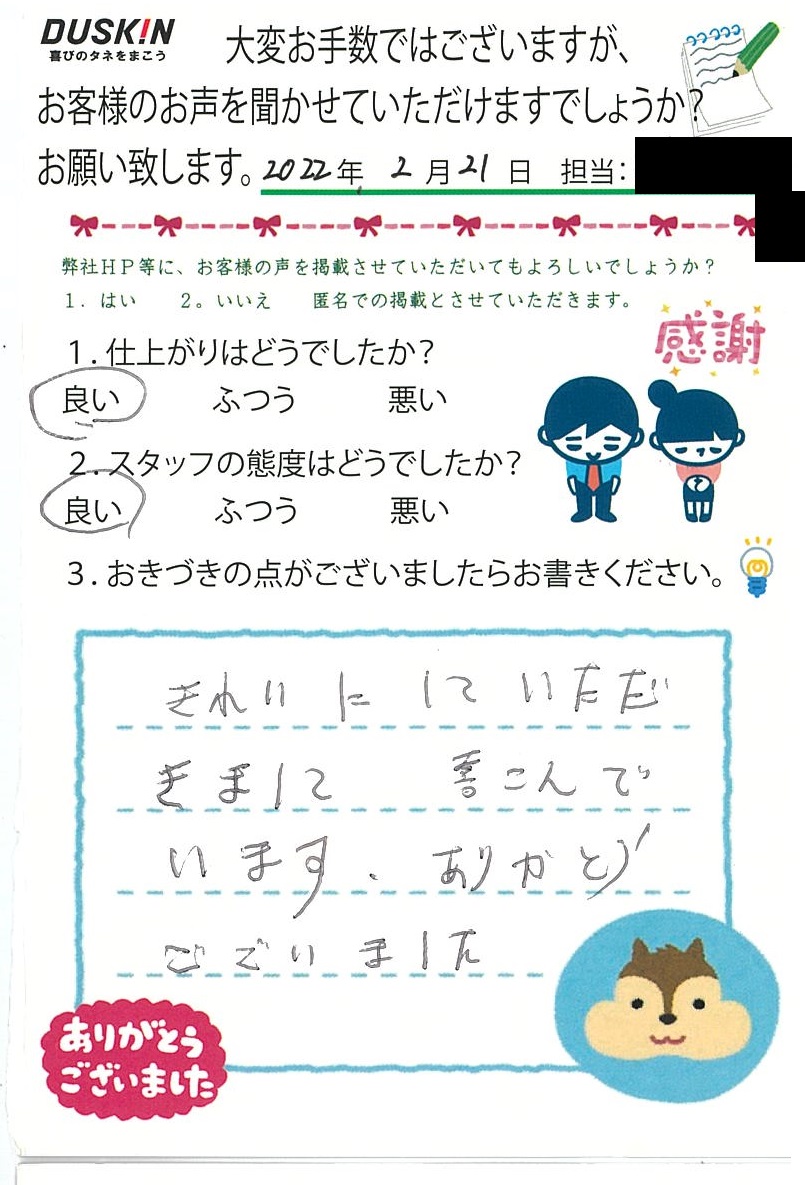 DUSKIN
喜びのタネをまこう
大変お手数ではございますが、
お客様のお声を聞かせていただけますでしょうか?
お願い致します。2022年 2月21日 担当:
弊社HP等に、お客様の声を掲載させていただいてもよろしいでしょうか?
1. はい 2。いいえ 匿名での掲載とさせていただきます。
感謝
1.仕上がりはどうでしたか?
良い ふつう 悪い
2.スタッフの態度はどうでしたか?
良い ふつう 悪い
3.おきづきの点がございましたらお書きください。
きれいにしていただ
きまして 喜こんで
います、ありがとう
ございました
ありがとう
ございました